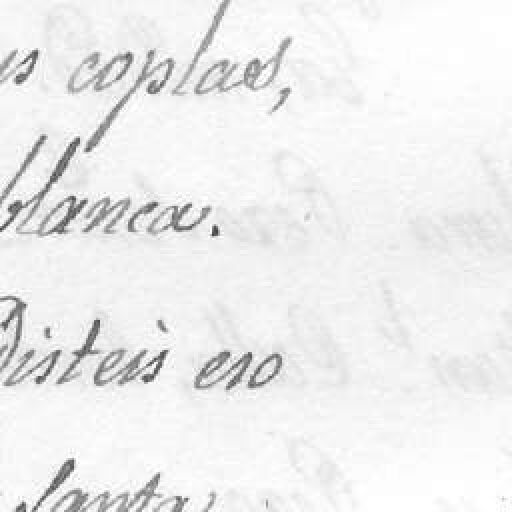 coplas,
blanca.
Disteis eso
Santa